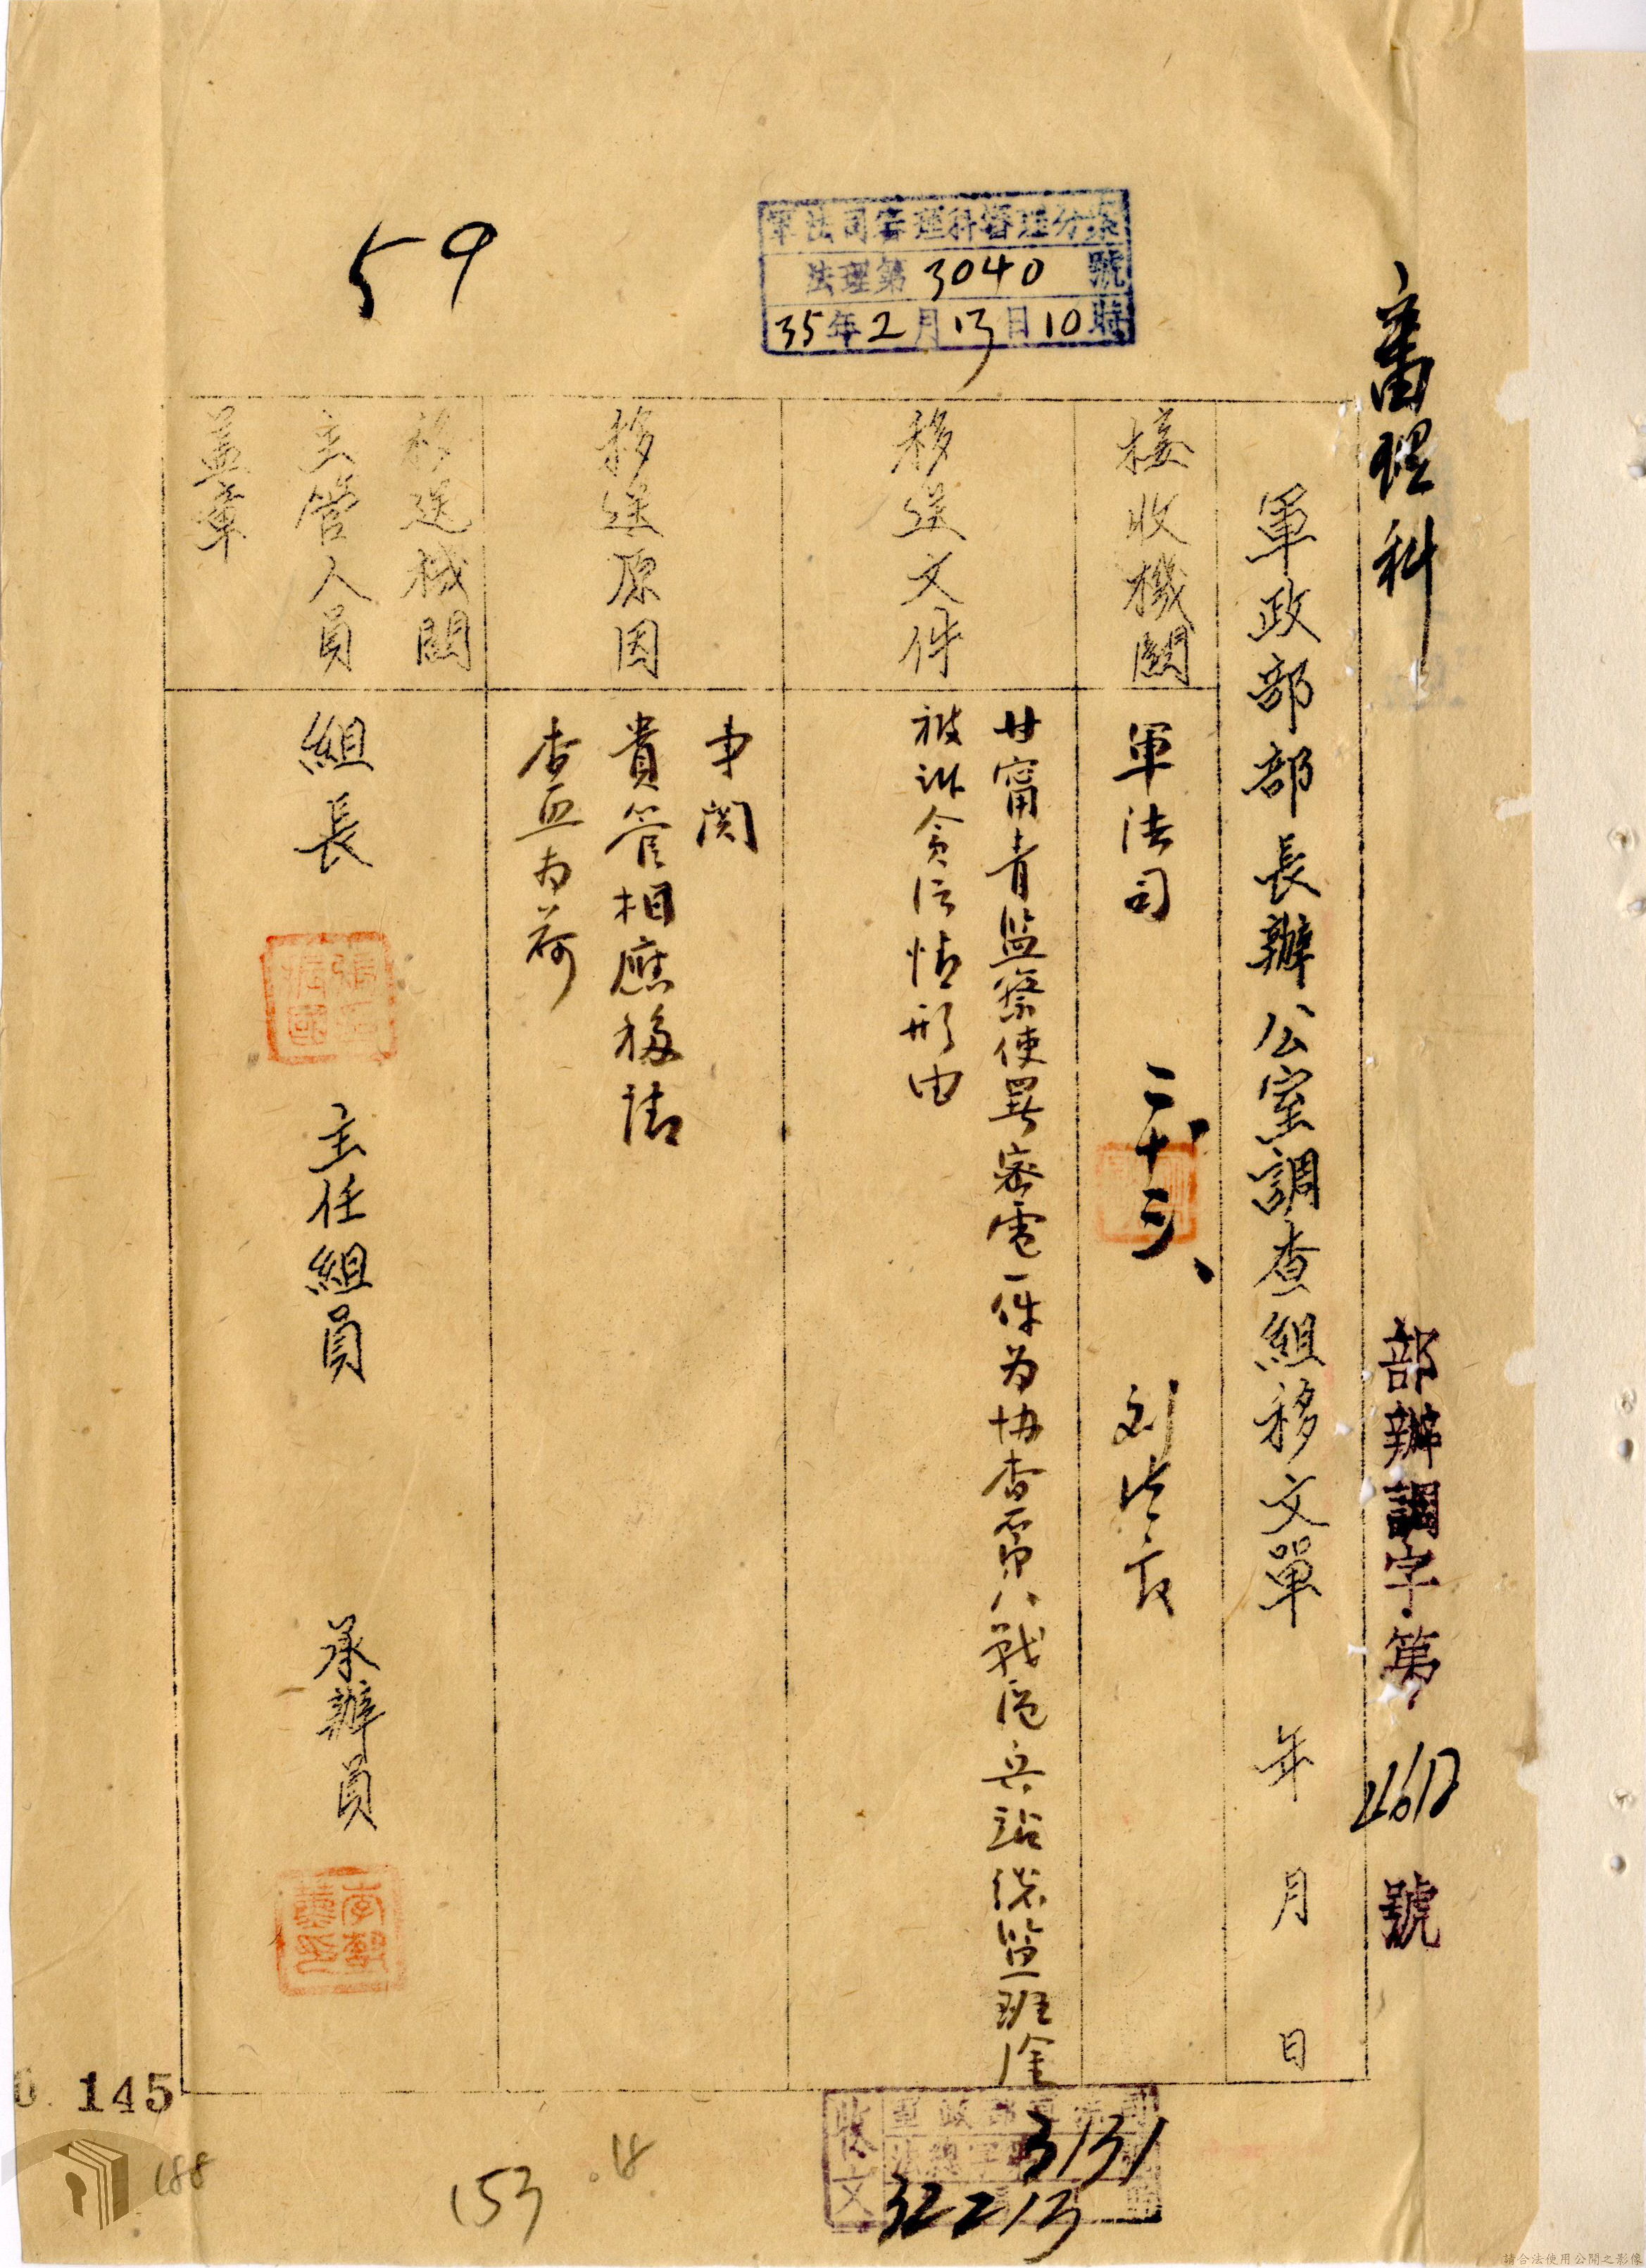 審理科
部辦調字第 號
軍政部部長辦公室調查組移文單 年 月 日
接收機關
軍法司
移送文件
甘甯青監察使署密電一件為協查第八戰區兵站總監班淦
被訴貪污情形由
移送原因
事関
貴管相應移請
查照為荷
移送機關
主管人員
蓋章
組長 主任組員 承辦員
軍法司審理科審理分案
法理第3040號
35年2月13日10時
59
收文
3131
145
188
153
請合法使用公開之影像